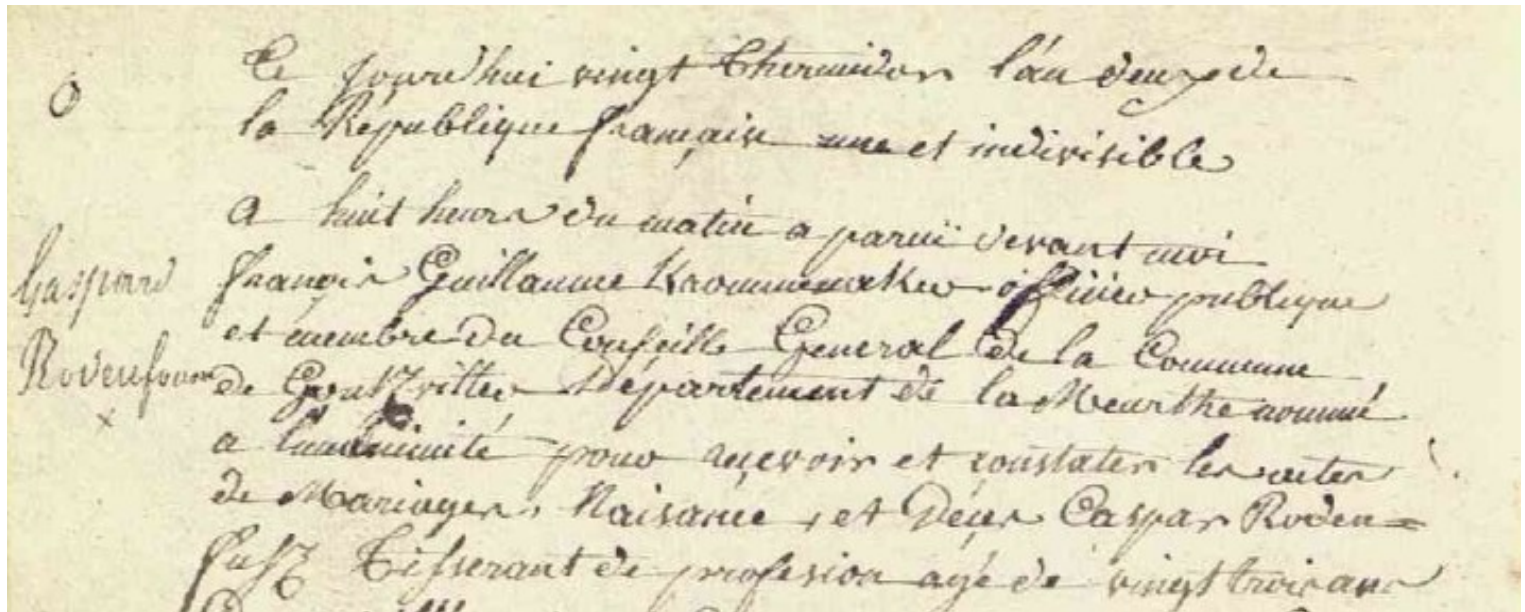 Ce jourd'hui vingt Thermidor l'an deuxe de
la République française une et indivisible
a huit heure du matin a paruï devant moi
Gaspard
françois Guillaume officier publique
et membre du Confeille General de la Commune
de Département de la Meurthe nommé
a pour reçevoir et constater les actes
de Mariages, Naisance, et Déçes Caspar Roden=
fusz Tisserant de profession agé de vingt trois ans